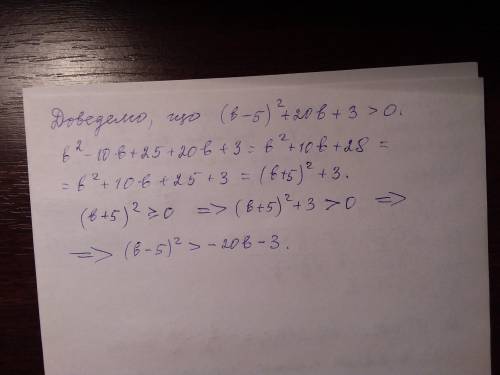 Доведемо, що (b-5)²+20b+3>0.
b²-10b+25+20b+3=b²+10b+28=
=b²+10b+25+3=(b+5)²+3.
(b+5)²≥0 => (b+5)²+3>0 =>
=> (b-5)²>-20b-3.